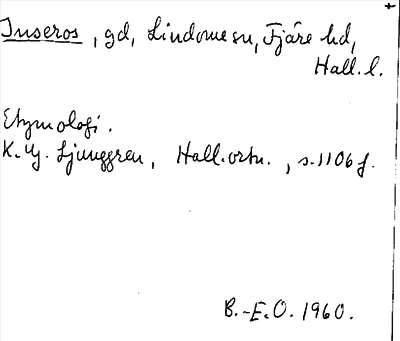 Inseros, gd, Lindome sn, Fjäre hd,
Hall. l.
Etymologi.
K. G. Ljunggren, Hall. ortn., s. 1106 f.
B.-E.O. 1960.